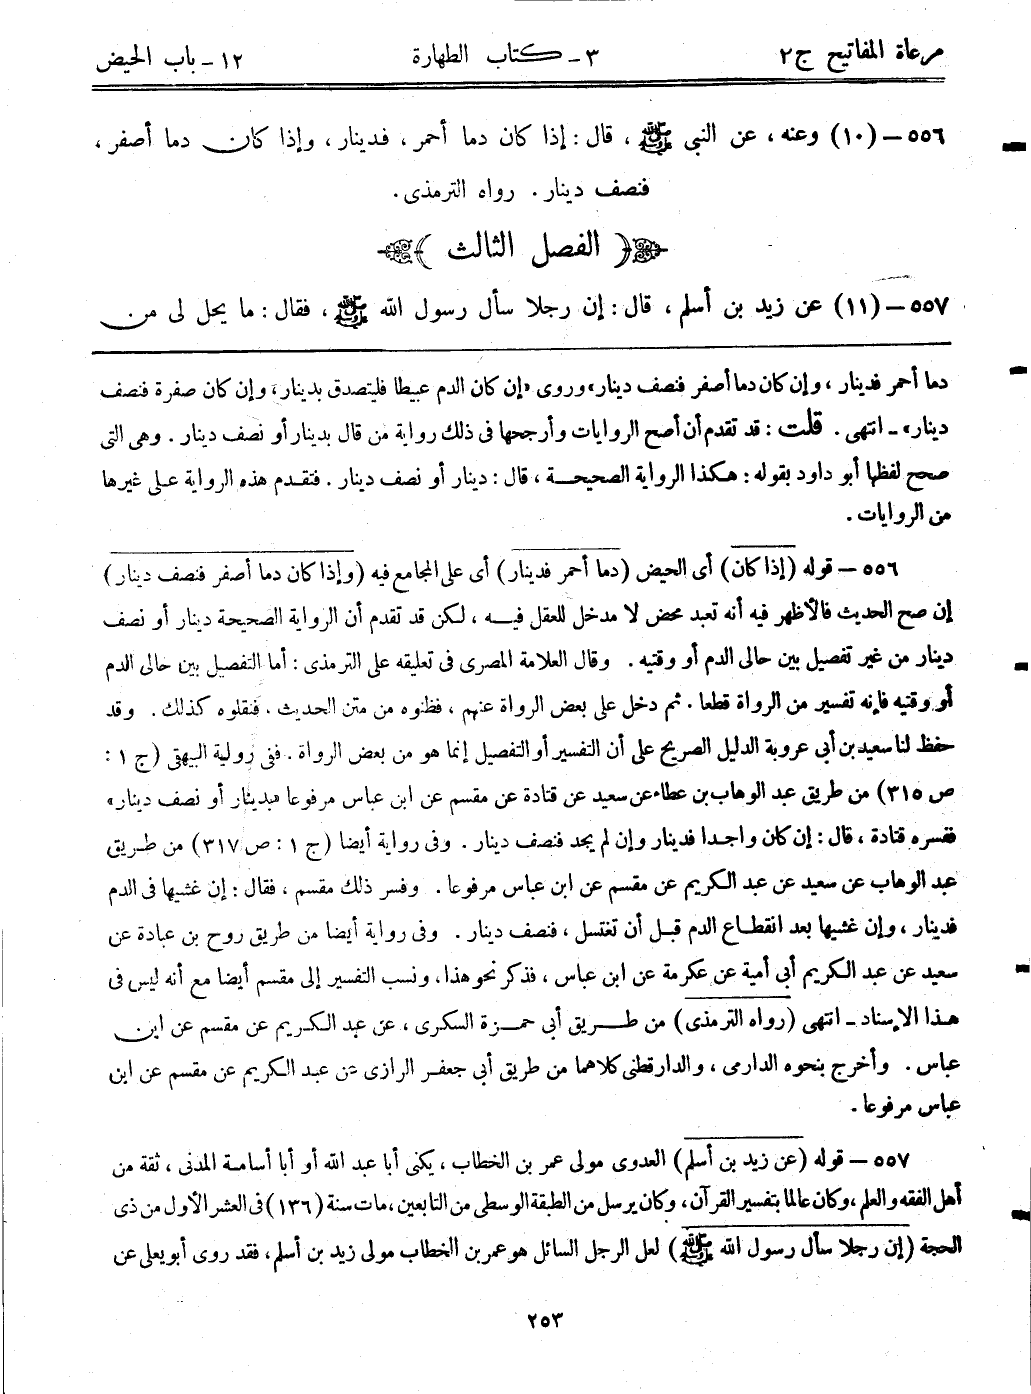 مرعاة المفاتيح ج٢ ٣ـ كتاب الطهارة ١٢ـ باب الحيض
٥٥٦ – (١٠) وعنه، عن النبى ﷺ، قال: إذا كان دما أحمر، فدينار، وإذا كان دما أصفر،
فنصف دينار. رواه الترمذى.
﴿ الفصل الثالث ﴾
٥٥٧ – (١١) عن زيد بن أسلم، قال: إن رجلا سأل رسول الله ﷺ، فقال: ما يحل لى من
دما أحمر فدينار، وإن كان دما أصفر فنصف دينار» وروى «إن كان الدم عبيطا فليتصدق بدينار، وإن كان صفرة فنصف
دينار» ـ انتهى. قلت: قد تقدم أن أصح الروايات وأرجحها فى ذلك رواية من قال بدينار أو نصف دينار. وهى التى
صحح لفظها أبو داود بقوله: هكذا الرواية الصحيحة، قال: دينار أو نصف دينار. فتقدم هذه الرواية على غيرها
من الروايات.
٥٥٦ – قوله (إذا كان) أى الحيض (دما أحمر فدينار) أى على المجامع فيه (وإذا كان دما أصفر فنصف دينار)
إن صح الحديث فالأظهر فيه أنه تعبد محض لا مدخل للعقل فيه، لكن قد تقدم أن الرواية الصحيحة دينار أو نصف
دينار من غير تفصيل بين حالى الدم أو وقتيه. وقال العلامة المصرى فى تعليقه على الترمذى: أما التفصيل بين حالى الدم
أو وقتيه فإنه تفسير من الرواة قطعا. ثم دخل على بعض الرواة عنهم، فظنوه من متن الحديث، فنقلوه كذلك. وقد
حفظ لنا سعيد بن أبى عروبة الدليل الصريح على أن التفسير أو التفصيل إنما هو من بعض الرواة. ففى رواية البيهقى (ج ١:
ص ٣١٥) من طريق عبد الوهاب بن عطاء عن سعيد عن قتادة عن مقسم عن ابن عباس مرفوعا «بدينار أو نصف دينار»
ففسره قتادة، قال: إن كان واجدا فدينار وإن لم يجد فنصف دينار. وفى رواية أيضا (ج ١: ص ٣١٧) من طريق
عبد الوهاب عن سعيد عن عبد الكريم عن مقسم عن ابن عباس مرفوعا. وفسر ذلك مقسم، فقال: إن غشيها فى الدم
فدينار، وإن غشيها بعد انقطاع الدم قبل أن تغتسل، فنصف دينار. وفى رواية أيضا من طريق روح بن عبادة عن
سعيد عن عبد الكريم أبى أمية عن عكرمة عن ابن عباس، فذكر نحو هذا، ونسب التفسير إلى مقسم أيضا مع أنه ليس فى
هذا الإسناد ـ انتهى (رواه الترمذى) من طريق أبى حمزة السكرى، عن عبد الكريم عن مقسم عن ابن
عباس. وأخرج بنحوه الدارمى، والدارقطنى كلاهما من طريق أبى جعفر الرازى عن عبد الكريم عن مقسم عن ابن
عباس مرفوعا.
٥٥٧ – قوله (عن زيد بن أسلم) العدوى مولى عمر بن الخطاب، يكنى أبا عبد الله أو أبا أسامة المدنى، ثقة من
أهل الفقه والعلم، وكان عالما بتفسير القرآن، وكان يرسل من الطبقة الوسطى من التابعين، مات سنة (١٣٦) فى العشر الأول من ذى
الحجة (إن رجلا سأل رسول الله ﷺ) لعل الرجل السائل هو عمر بن الخطاب مولى زيد بن أسلم، فقد روى أبو يعلى عن
٢٥٣